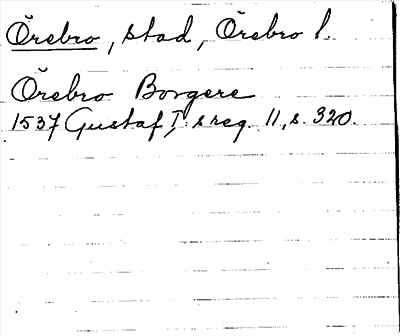 Örebro, stad, Örebro l.
Örebro Borgere
1537 Gustaf I:s reg. 11, s. 320.